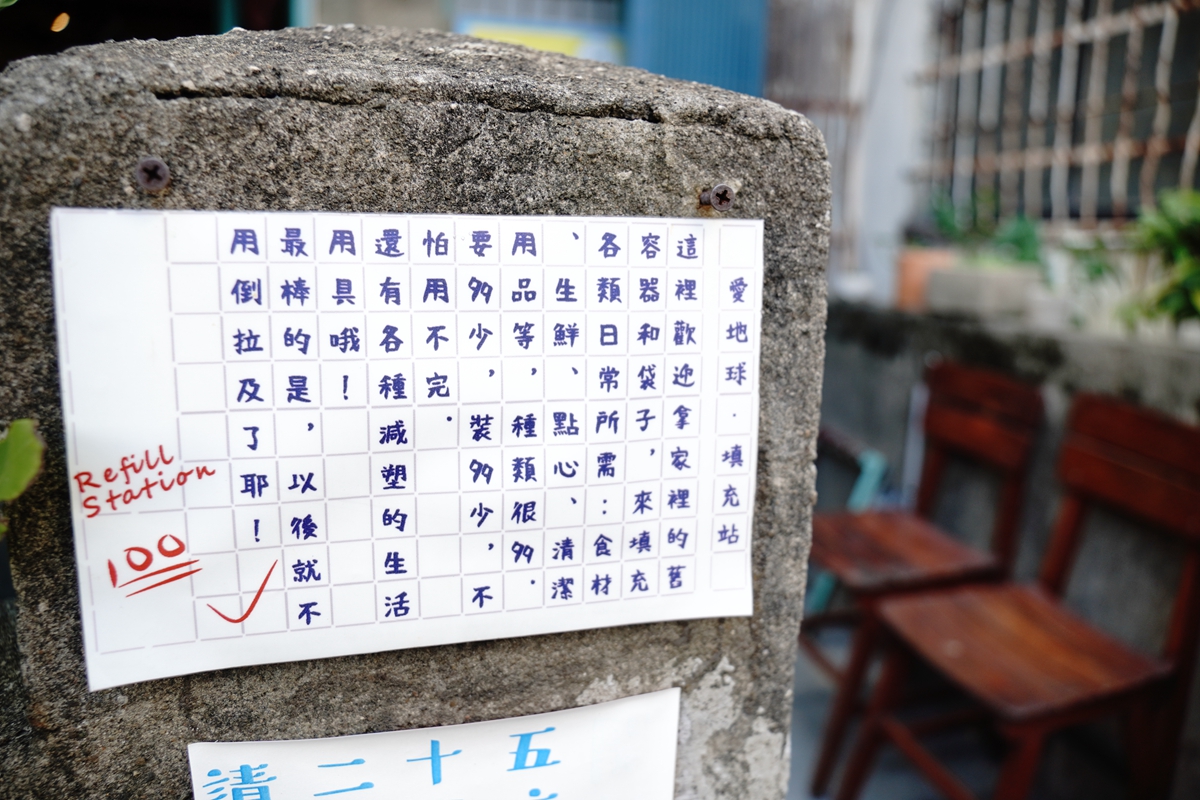 愛地球·填充站
這裡歡迎拿家裡的舊
容器和袋子，來填充
各類日常所需：食材
、生鮮、點心、清潔
用品等，種類很多.
要多少，裝多少，不
怕用不完.
還有各種減塑的生活
用具哦！
最棒的是，以後就不
用倒拉及了耶！
Refill
Station
100
五
十
二
清